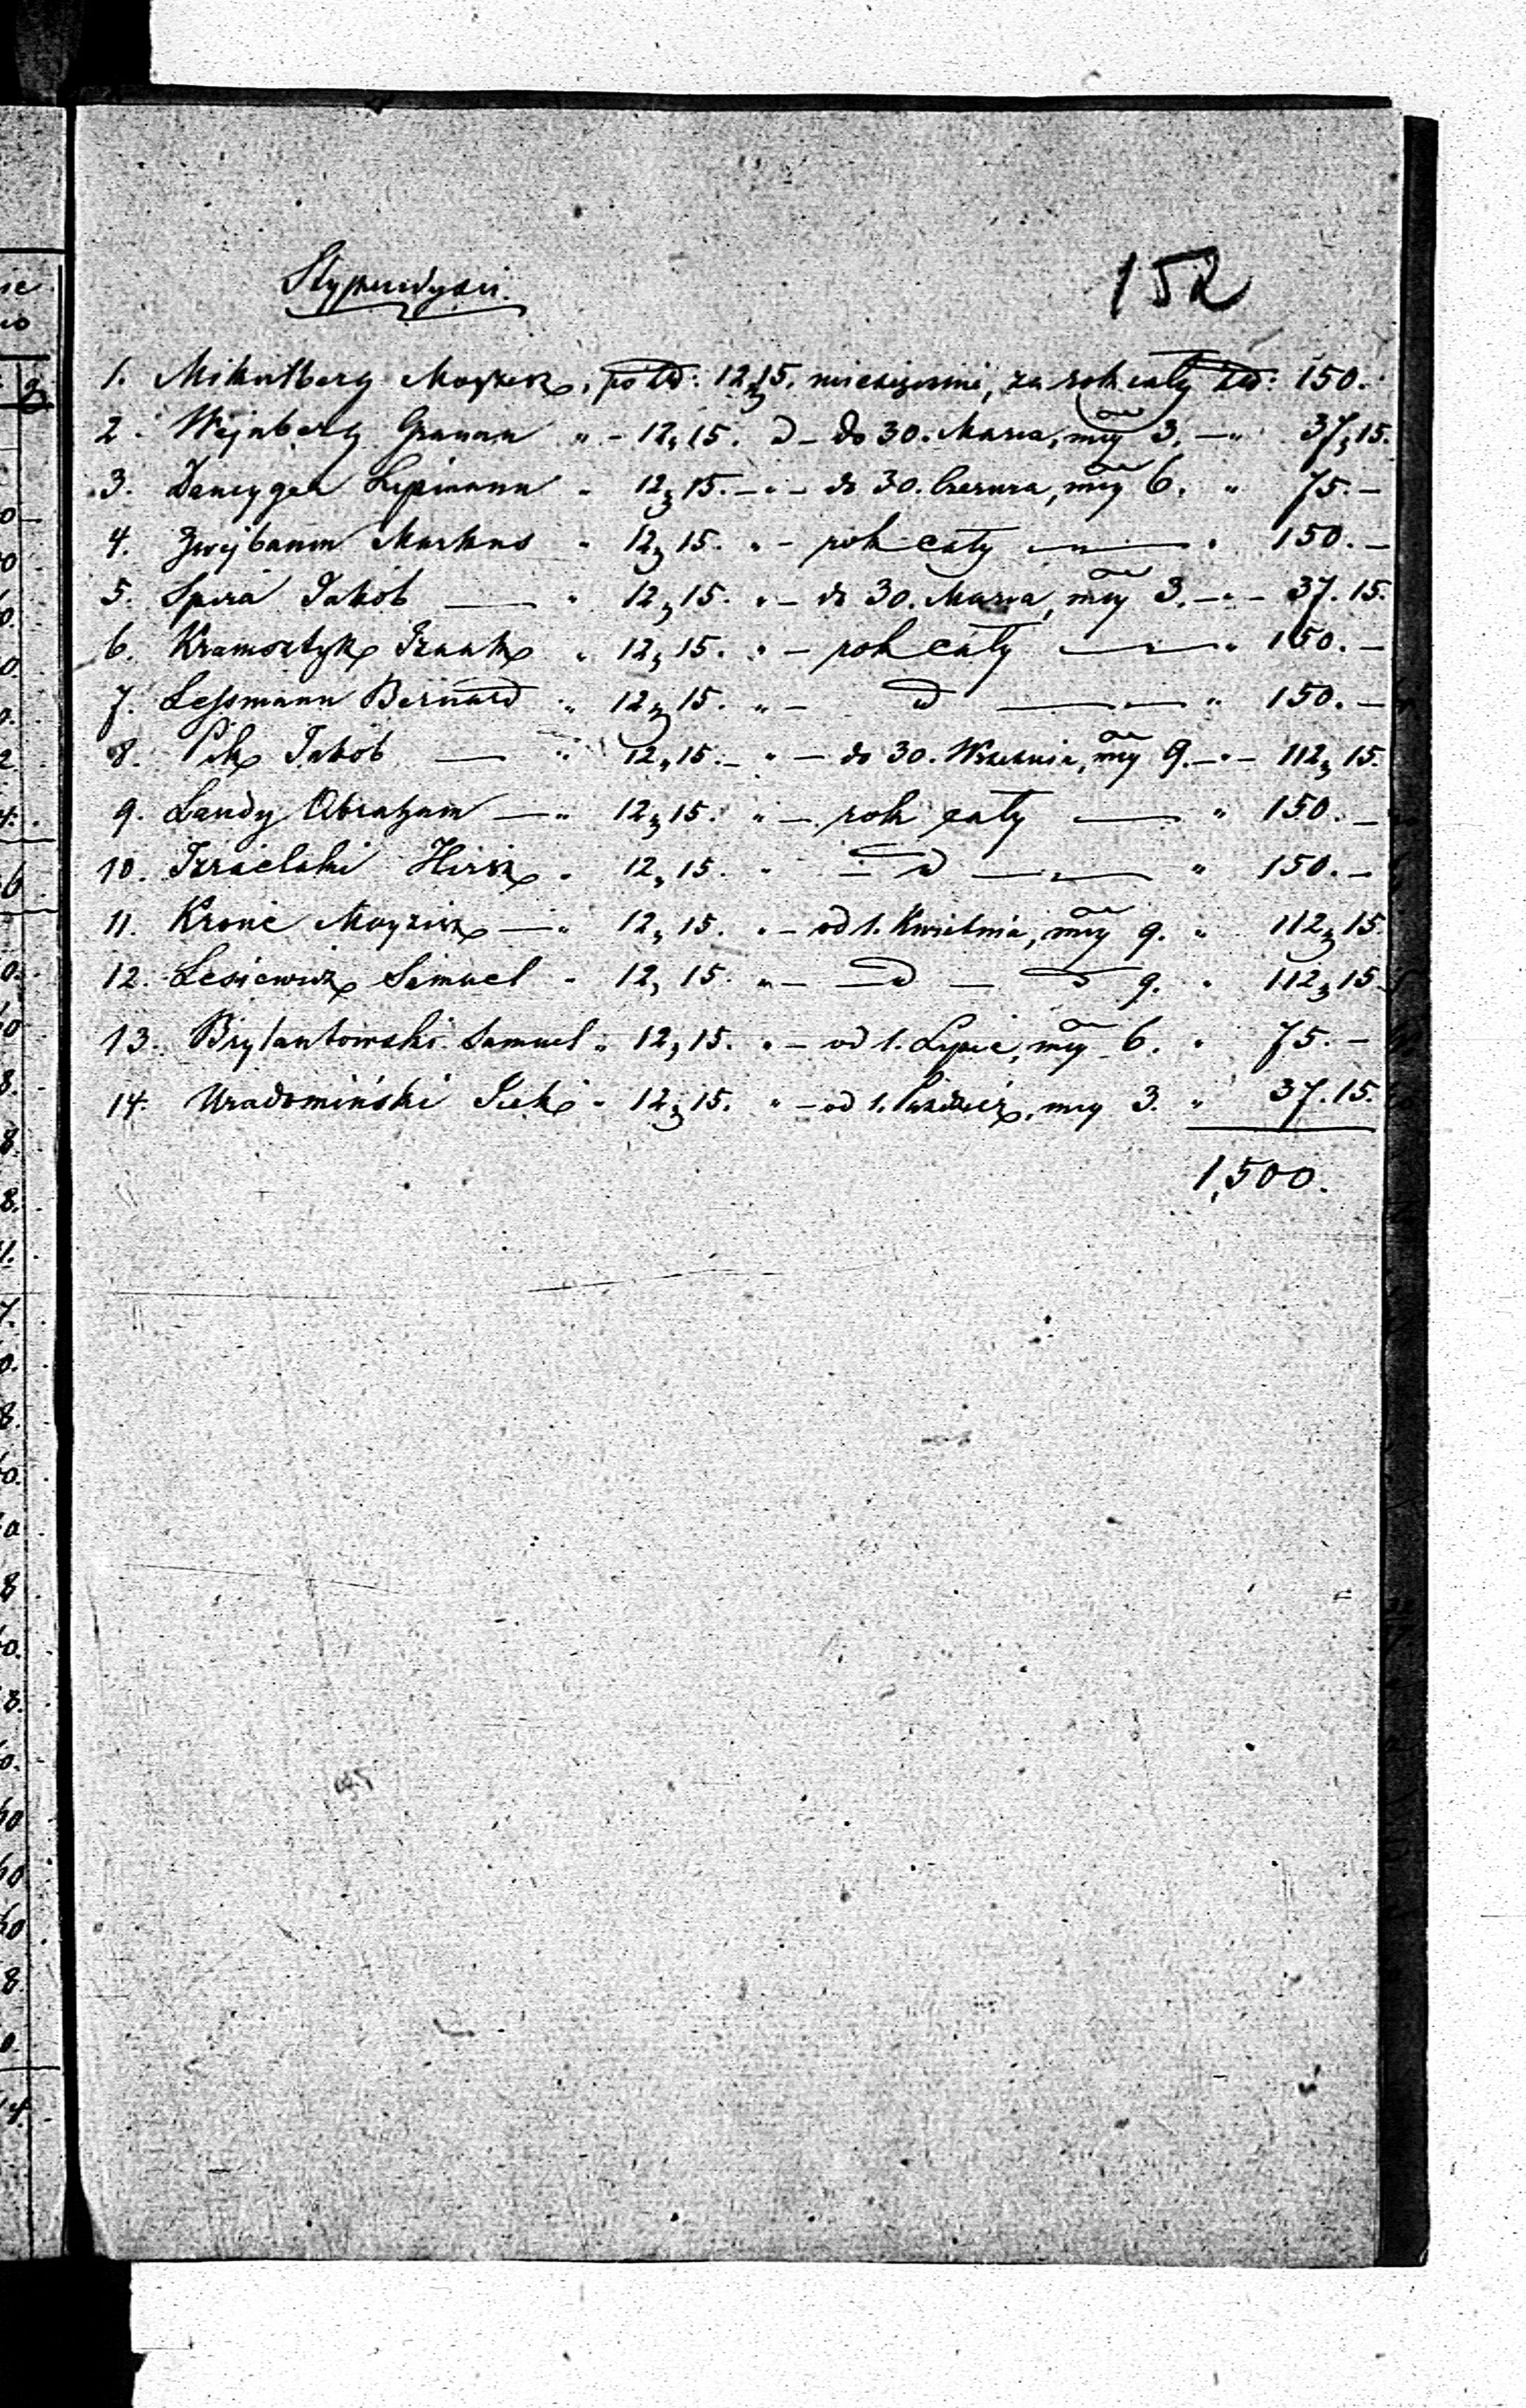 Stypendyści.
152
1. Mikulberg Moyżesz, po złł: 12 „ 15. miesięcznie, za rok cały złł: 150.
2. Wejnberg Gmanan „ - 12 „ 15. d - do 30. Marca, mcy 3. — „ 37 „ 15.
3. Dancyger Lipmann „ 12 „ 15. — „ — do 30. Czerwca, mcy 6. „ 75. —
4. Zwejbaum Markus „ 12 „ 15. „ — rok cały — „ — „ 150. —
5. Spira Jakób — „ 12 „ 15. „ — do 30. Marca, mcy 3. — „ — 37. 15.
6. Kramsztyk Izaak „ 12 „ 15. „ — rok cały — „ — „ 150. —
7. Lessmann Bernard „ 12 „ 15. „ — d — „ — „ 150. —
8. Pik Jakób — „ 12 „ 15. — „ — do 30. Września, mcy 9. — „ — 112 „ 15.
9. Landy Abraham — „ 12 „ 15. „ — rok cały — „ 150. —
10. Izraelski Hirsz „ 12 „ 15. „ — d — „ — „ 150. —
11. Kronc Moyżesz — „ 12 „ 15. „ — od 1. Kwietnia, mcy 9. „ 112 „ 15
12. Lesiewicz Samuel „ 12 „ 15. „ — d — d 9. „ 112 „ 15.
13. Brylantowski Samuel „ 12 „ 15. „ — od 1. Lipca, mcy 6. „ 75. —
14. Uradomiński Icek „ 12 „ 15. „ — od 1. Paźdźier, mcy 3. „ 37. 15.
1,500.